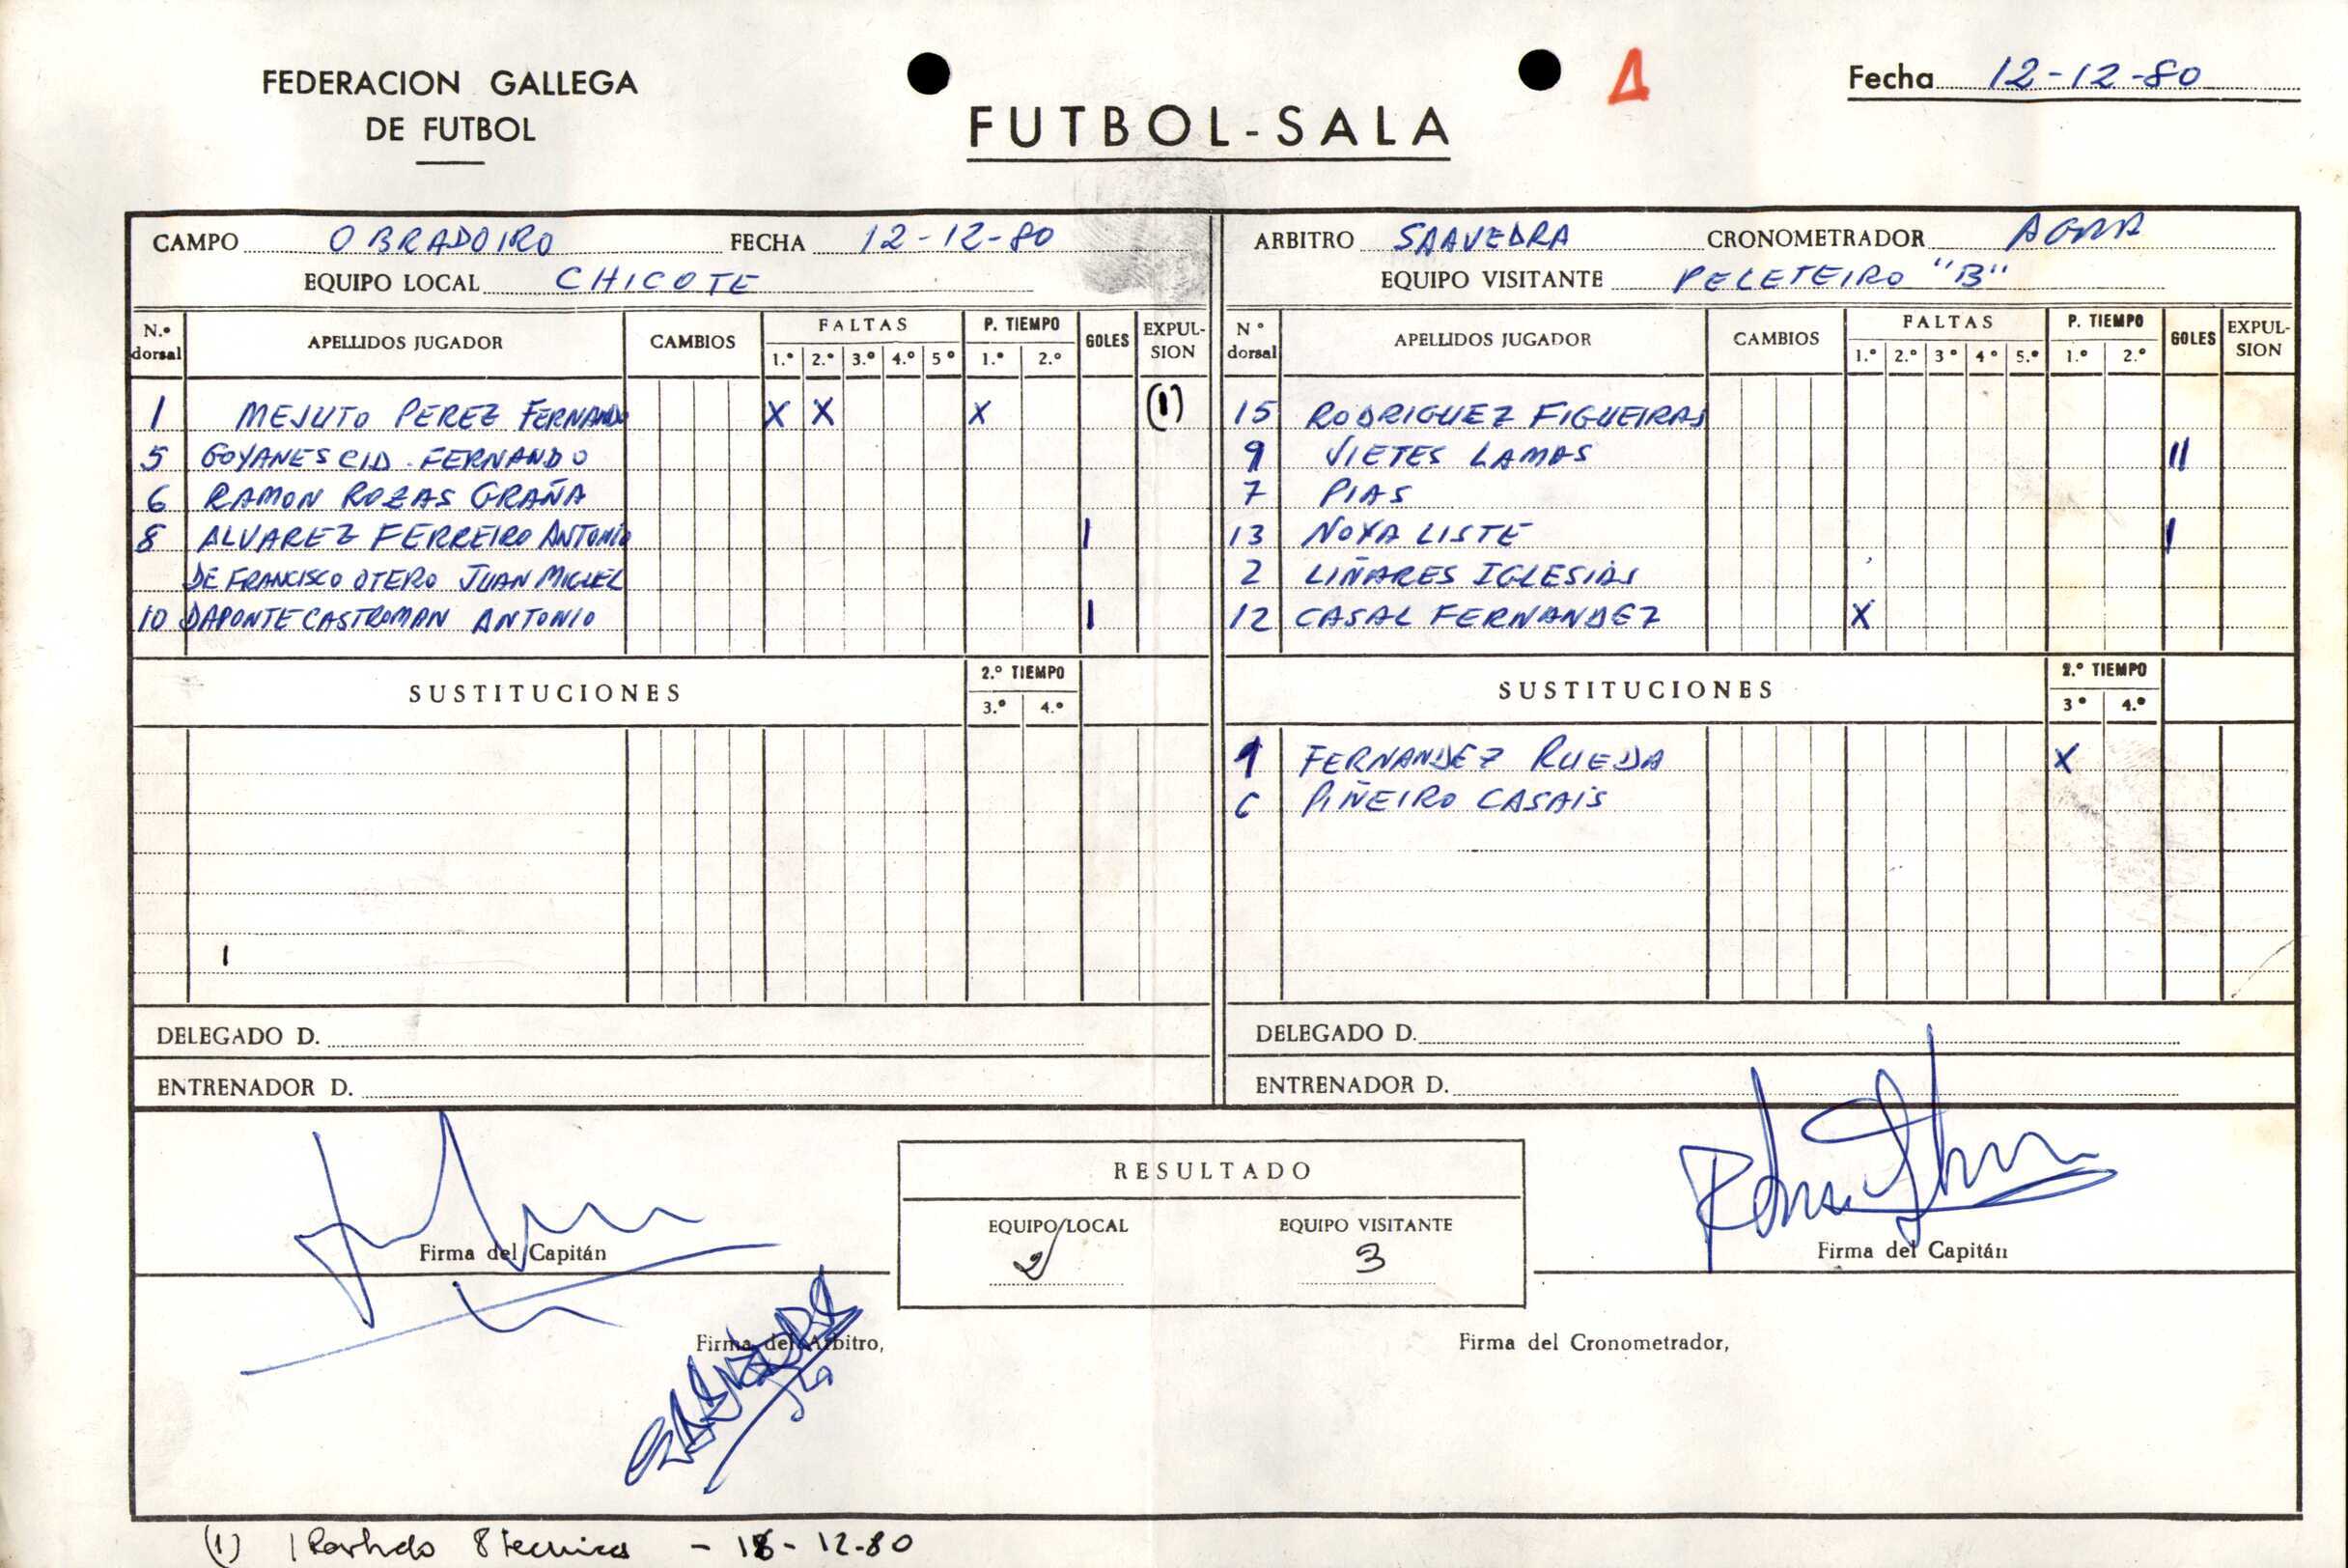 FEDERACION GALLEGA
DE FUTBOL
FUTBOL-SALA
Fecha 12-12-80
CAMPO OBRADOIRO FECHA 12-12-80
EQUIPO LOCAL CHICOTE
N.º dorsal APELLIDOS JUGADOR CAMBIOS FALTAS 1.º 2.º 3.º 4.º 5º P. TIEMPO 1.º 2.º GOLES EXPULSION
1 MEJUTO PEREZ FERNANDO X X X (1)
5 GOYANES CID. FERNANDO
6 RAMON ROZAS GRAÑA
8 ALVAREZ FERREIRO ANTONIO I
DE FRANCISCO OTERO JUAN MIGUEL
10 DAPONTE CASTROMAN ANTONIO I
SUSTITUCIONES 2.º TIEMPO 3.º 4.º
DELEGADO D.
ENTRENADOR D.
ARBITRO SAAVEDRA CRONOMETRADOR
EQUIPO VISITANTE PELETEIRO "B"
Nº dorsal APELLIDOS JUGADOR CAMBIOS FALTAS 1.º 2.º 3º 4º 5.º P. TIEMPO 1.º 2.º GOLES EXPULSION
15 RODRIGUEZ FIGUEIRAS
9 VIETES LAMAS II
7 PIAS
13 NOYA LISTE I
2 LIÑARES IGLESIAS
12 CASAL FERNANDEZ X
SUSTITUCIONES 2.º TIEMPO 3º 4.º
1 FERNANDEZ RUEDA X
6 PIÑEIRO CASAIS
DELEGADO D.
ENTRENADOR D.
RESULTADO
EQUIPO LOCAL EQUIPO VISITANTE
2 3
Firma del Capitán Firma del Capitán
Firma del Arbitro, Firma del Cronometrador,
SAAVEDRA
(1) 1 Partido - 18-12-80